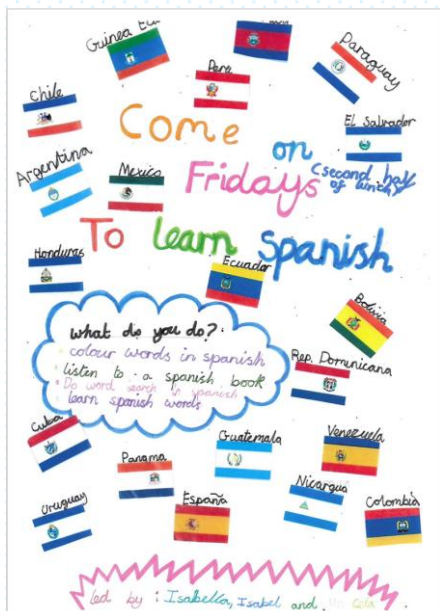 Guinea
Peru
Paraguay
Chile
Come
on
El Salvador
Argentina
Mexico
Fridays (second half
of lunch)
To learn spanish
Honduras
Ecuador
Bolivia
what do you do?
colour words in spanish
listen to a spanish book
Do word search in spanish
learn spanish words
Rep. Dominicana
Cuba
Guatemala
Venezuela
Panama
España
Nicargua
Colombia
Uruguay
led by: Isabella, Isabel and